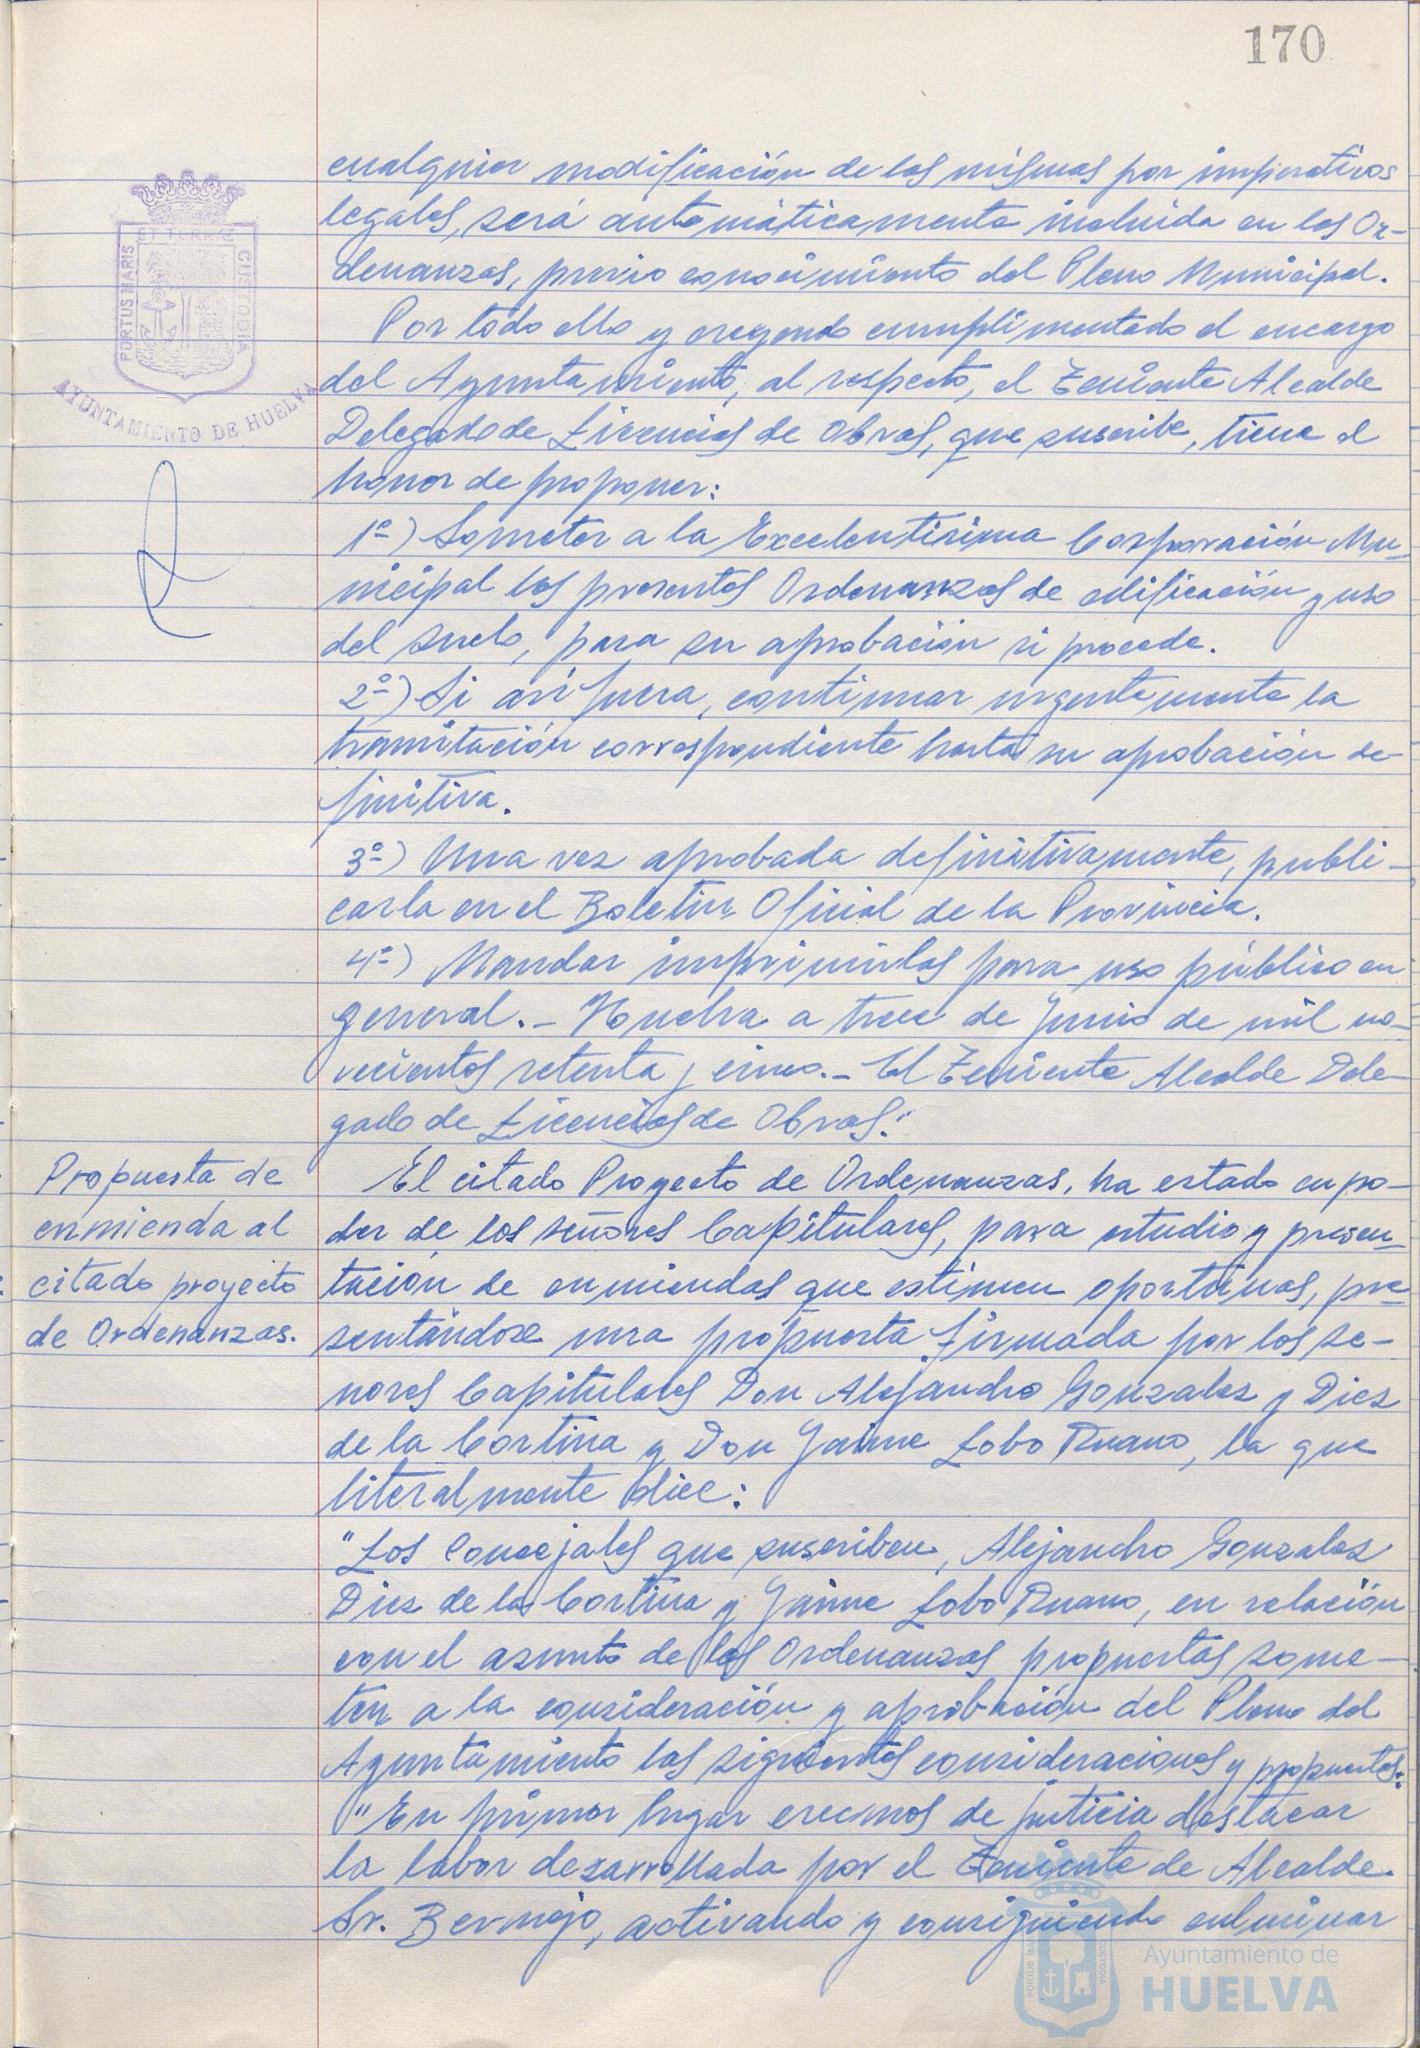 170
cualquier modificación de las mismas por imperativos
legales, será automáticamente incluida en las Or-
denanzas, previo conocimiento del Pleno Municipal.
Por todo ello y creyendo cumplimentado el encargo
del Ayuntamiento, al respecto, el Teniente Alcalde
Delegado de Licencias de Obras, que suscribe, tiene el
honor de proponer:
1º) Someter a la Excelentísima Corporación Mu-
nicipal las presentes Ordenanzas de edificación y uso
del suelo, para su aprobación si procede.
2º) Si así fuera, continuar urgentemente la
tramitación correspondiente hasta su aprobación de-
finitiva.
3º) Una vez aprobada definitivamente, publi-
carla en el Boletín Oficial de la Provincia.
4º) Mandar imprimirlas para uso público en
general.- Huelva a trece de Junio de mil no-
vecientos setenta y cinco.- El Teniente Alcalde Dele-
gado de Licencias de Obras."
Propuesta de
enmienda al
citado proyecto
de Ordenanzas.
El citado Proyecto de Ordenanzas, ha estado en po-
der de los señores Capitulares, para estudio y presen-
tación de enmiendas que estimen oportunas, pre-
sentándose una propuesta firmada por los se-
ñores Capitulares Don Alejandro Gonzalez y Diez
de la Cortina y Don Jaime Lobo Ruano, la que
literalmente dice:
"Los Concejales que suscriben, Alejandro Gonzalez
Diez de la Cortina y Jaime Lobo Ruano, en relación
con el asunto de las Ordenanzas propuestas some-
ten a la consideración y aprobación del Pleno del
Ayuntamiento las siguientes consideraciones y propuestas:
"En primer lugar creemos de justicia destacar
la labor desarrollada por el Teniente de Alcalde
Sr. Bermejo, activando y consiguiendo culminar
PORTUS MARIS
ET TERRAE
CUSTODIA
AYUNTAMIENTO DE HUELVA
Ayuntamiento de
HUELVA